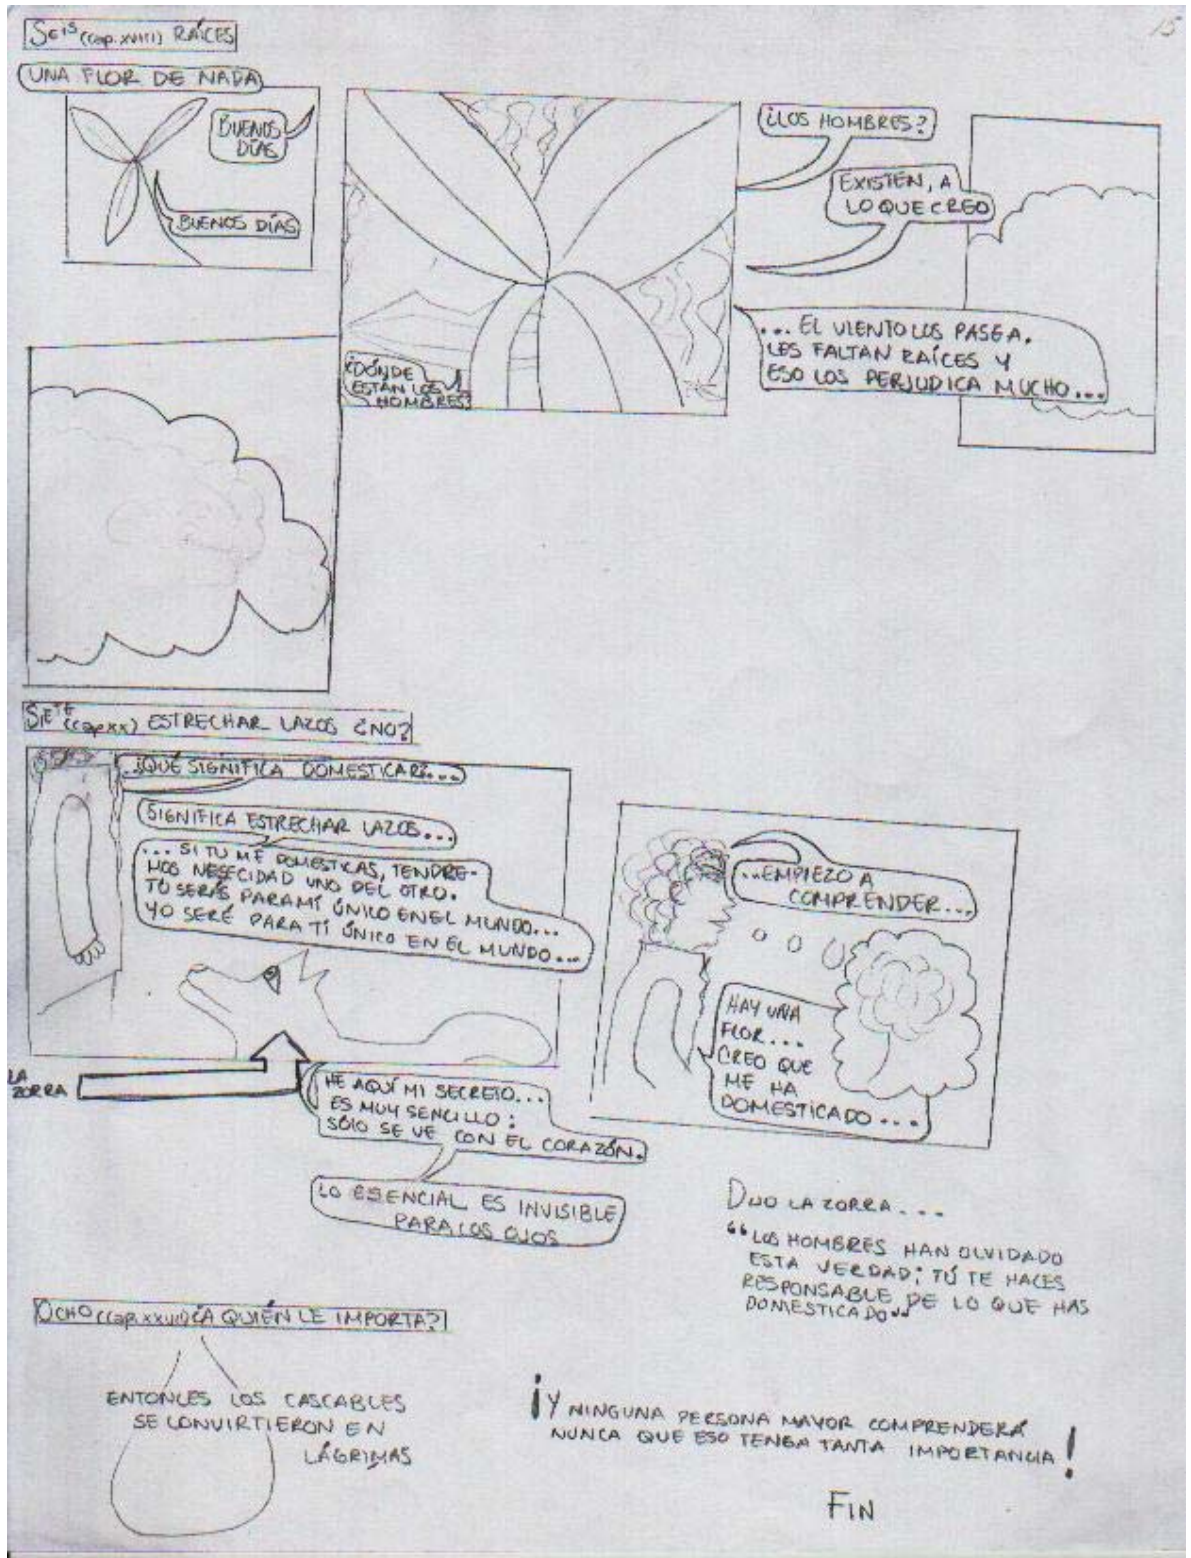 15
SEIS (Cap. XVIII) RAÍCES
UNA FLOR DE NADA
BUENOS
DÍAS
BUENOS DÍAS
¿DÓNDE
ESTÁN LOS
HOMBRES?
¿LOS HOMBRES?
EXISTEN, A
LO QUE CREO
... EL VIENTO LOS PASEA.
LES FALTAN RAÍCES Y
ESO LOS PERJUDICA MUCHO...
SIETE (Cap XX) ESTRECHAR LAZOS ¿NO?
...¿QUÉ SIGNIFICA DOMESTICAR?...
SIGNIFICA ESTRECHAR LAZOS...
... SI TU ME DOMESTICAS, TENDRE-
MOS NESECIDAD UNO DEL OTRO.
TÚ SERÁS PARA MÍ ÚNICO EN EL MUNDO...
YO SERÉ PARA TÍ ÚNICO EN EL MUNDO...
LA
ZORRA
HE AQUÍ MI SECRETO...
ES MUY SENCILLO:
SÓLO SE VE CON EL CORAZÓN.
LO ESENCIAL ES INVISIBLE
PARA LOS OJOS
...EMPIEZO A
COMPRENDER...
HAY UNA
FLOR...
CREO QUE
ME HA
DOMESTICADO...
DIJO LA ZORRA...
"LOS HOMBRES HAN OLVIDADO
ESTA VERDAD; TÚ TE HACES
RESPONSABLE DE LO QUE HAS
DOMESTICADO"
OCHO (Cap. XXVII) ¿A QUIÉN LE IMPORTA?
ENTONCES LOS CASCABLES
SE CONVIRTIERON EN
LÁGRIMAS
¡Y NINGUNA PERSONA MAYOR COMPRENDERÁ
NUNCA QUE ESO TENGA TANTA IMPORTANCIA!
FIN